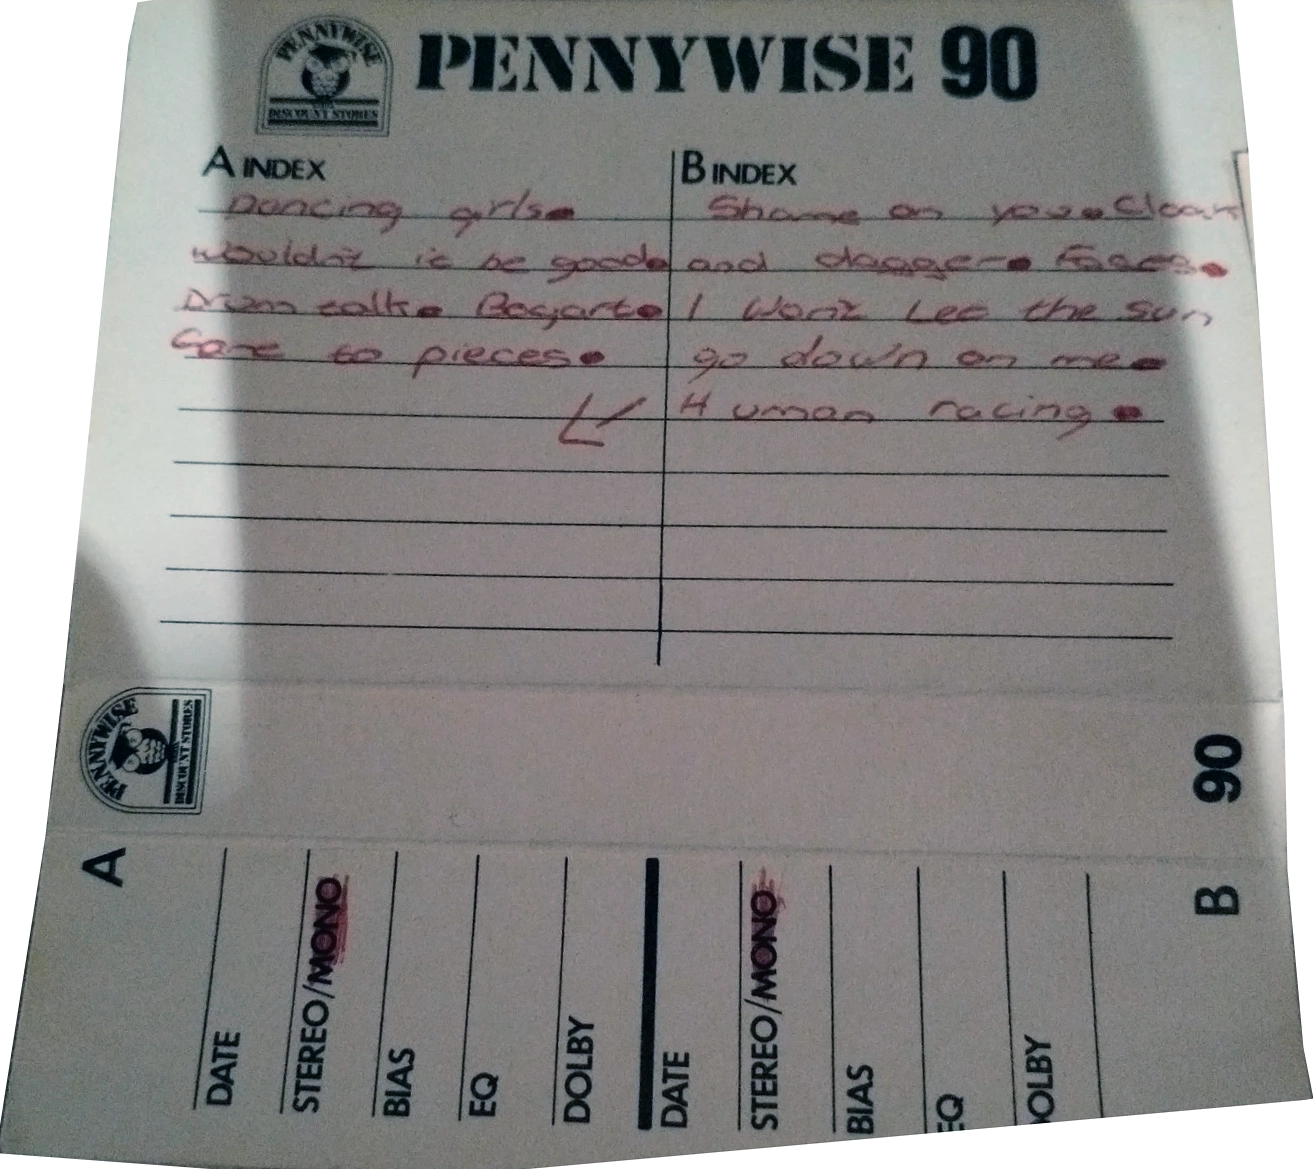 PENNYWISE
DISCOUNT STORES
PENNYWISE 90
A INDEX
Dancing girls.
Wouldn't it be good.
Drum talk. Bogart.
Gone to pieces.
B INDEX
Shame on you. Cloak
and dagger. Faces.
I Wont Let the sun
go down on me.
Human racing.
PENNYWISE
DISCOUNT STORES
90
A
B
DATE
STEREO/MONO
BIAS
EQ
DOLBY
DATE
STEREO/MONO
BIAS
EQ
DOLBY